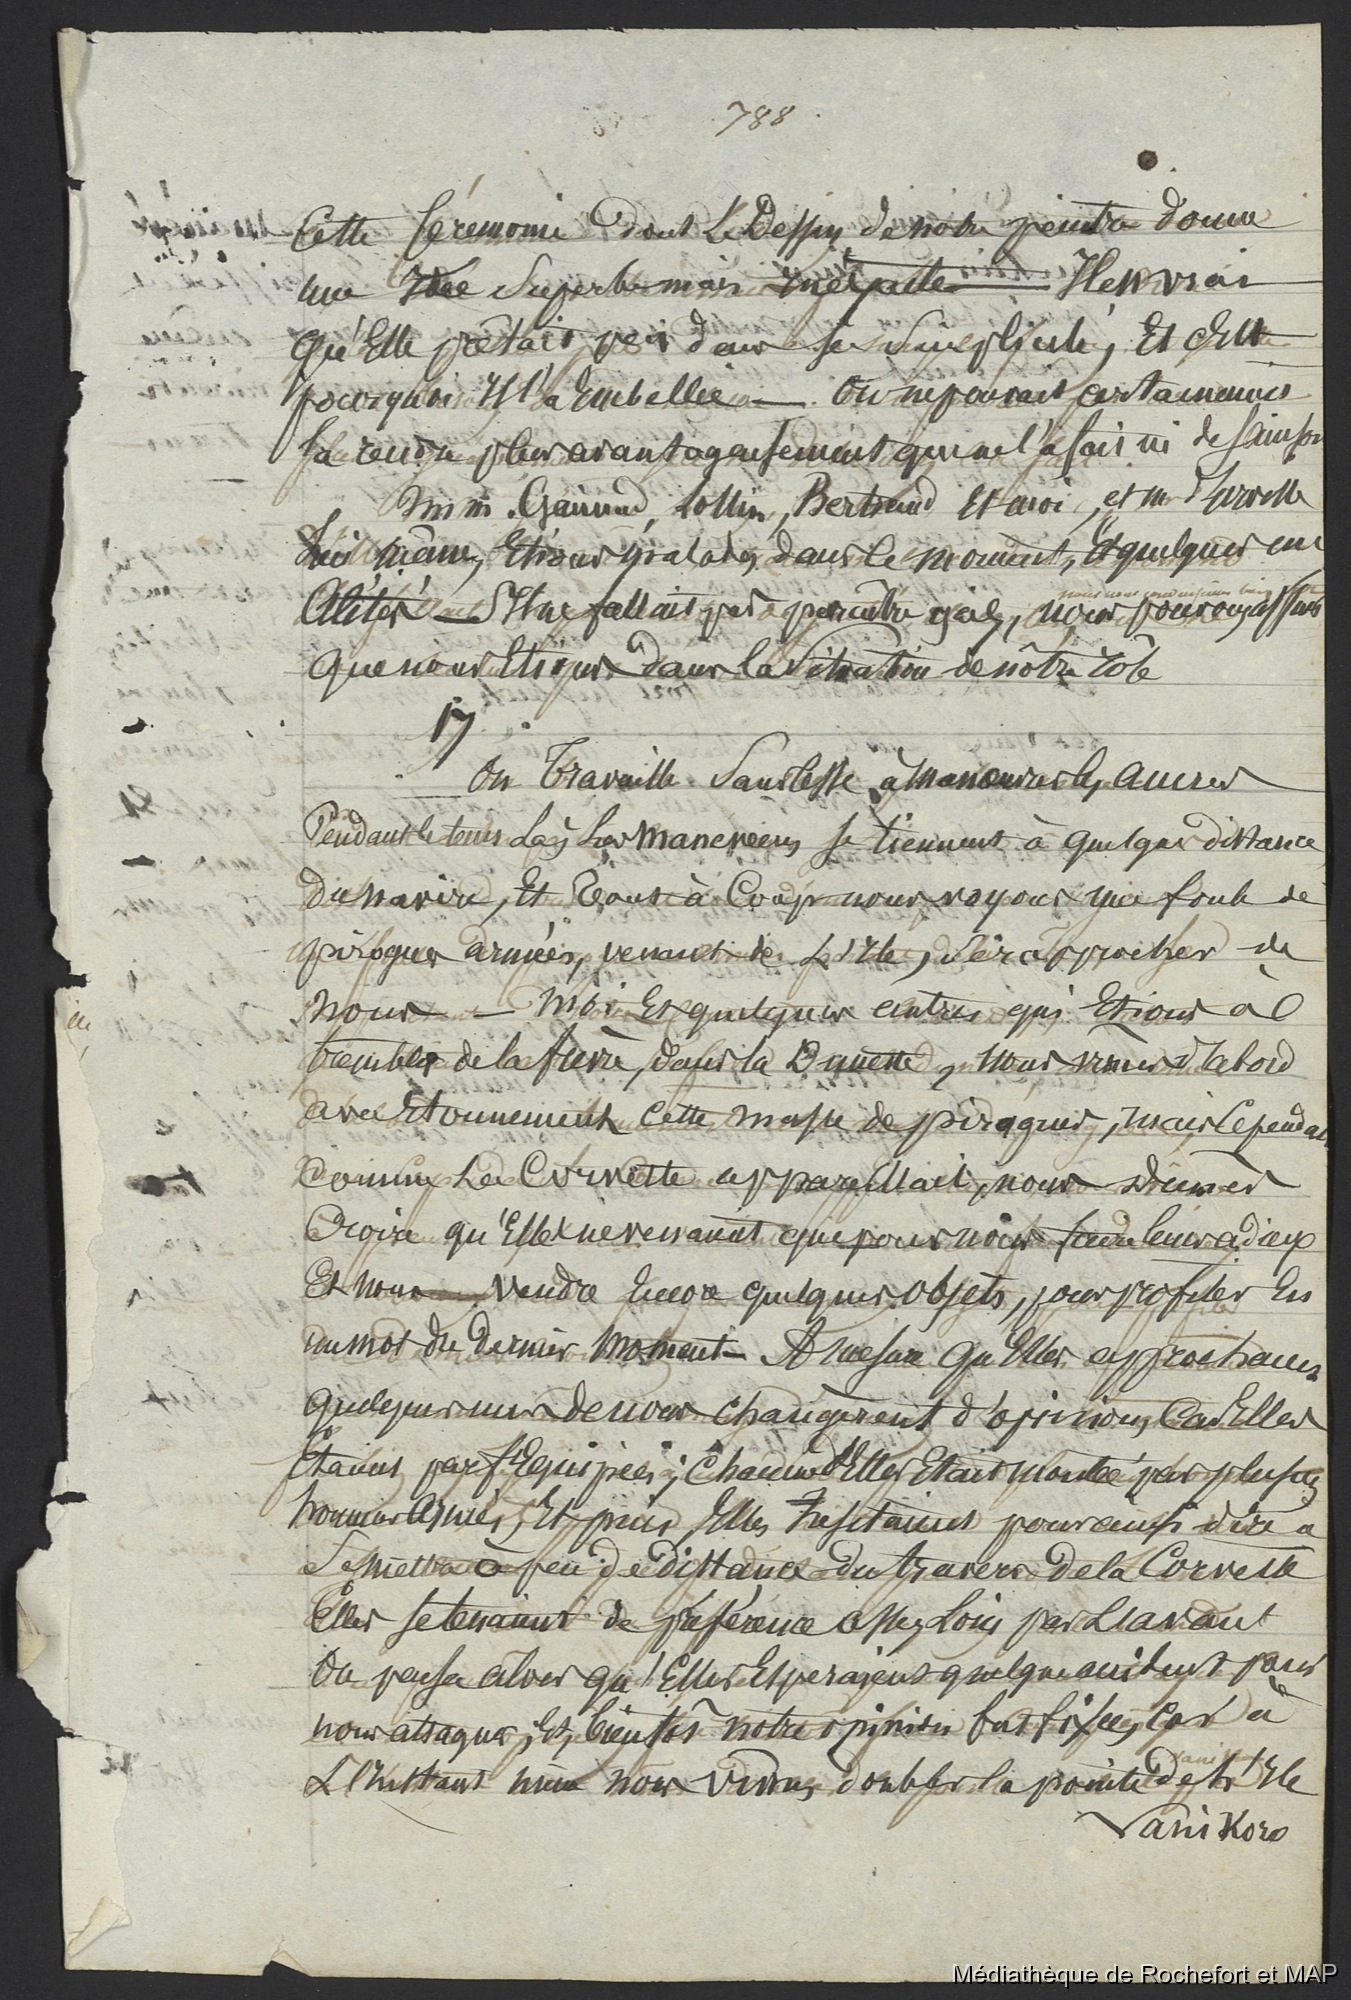 788
Cette Céremonie dont Le Dessin de notre peintre donne
une Idée Superbe mais inexacte Il est vrai
qu'Elle prêtait peu dans sa Simplicité, Et c'Est
pourquoi Il l'a Embellie — On ne pouvait certainement
la rendre plus avantageusement que ne l'a fait m. de Sainson
Mm. Gaimard, Lottin, Bertrand Et moi, et m. d'Urville
Lui même, Etions malades dans le moment, Et quelques uns
Alités — Il ne fallait pas paraitre gais, nous pouvons assurer
que nous Etions dans la Situation de nôtre rôle
17
On Travaille Sans Cesse à manoeuvrer les ancres
Pendant le tems là Les Maneveens se tiennent à quelque distance
du navire, Et Tout à Coup nous voyons une foule de
pirogues armées, venant de L'Ile, se rapprocher de
nous — Moi Et quelques autres qui Etions à
trembler de la fievre, dans la Dunette, nous vimes d'abord
avec Etonnement cette masse de pirogues, mais Cependant
comme La Corvette appareillait, nous dûmes
croire qu'Elles ne venaient que pour nous faire leurs adieux
Et nous vendre Encore quelques objets, pour profiter En
un mot du dernier moment — A mesure qu'Elles approchaient
quelques uns de nous changèrent d'opinion, Car Elles
Etaient par f Equipées; Chacune d'Elles Etait montée par plusieurs
hommes Armés, Et puis Elles hesitaient pour ainsi dire a
Se mettre à peu de distance du travers de la Corvette
Elles se tenaient de préférence assez Loin par L'avant
On pensa alors qu'Elles Esperaient quelque accident pour
nous attaquer, Et bientôt notre opinion fut fixée, car à
L'Instant même nous vimes doubler la pointe de L'Ile
Vanikoro
Médiathèque de Rochefort et MAP